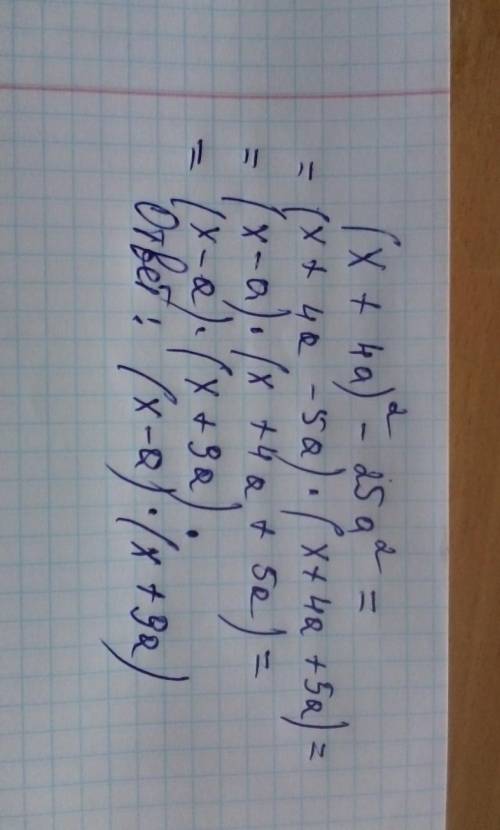 (x + 4a)² - 25a² =
= (x + 4a - 5a) · (x + 4a + 5a) =
= (x - a) · (x + 4a + 5a) =
= (x - a) · (x + 9a).
Ответ: (x - a) · (x + 9a)